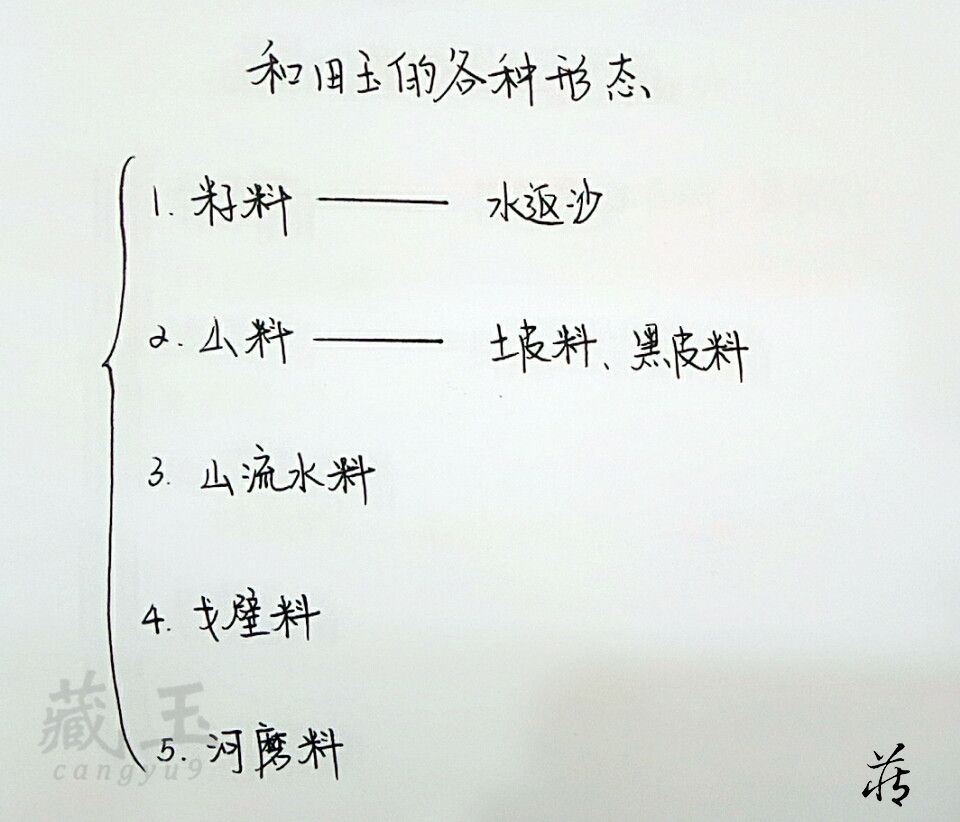 和田玉的各种形态
1. 籽料 —— 水返沙
2. 山料 —— 土皮料、黑皮料
3. 山流水料
4. 戈壁料
5. 河磨料
藏玉
cangyu9